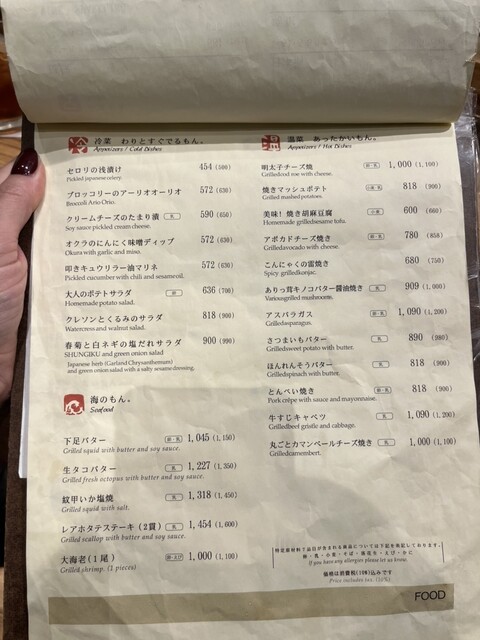 冷 冷菜 わりとすぐでるもん。
Appetaizers / Cold Dishes
セロリの浅漬け 454 (500)
Pickled japanese celery.
ブロッコリーのアーリオオーリオ 572 (630)
Broccoli Ario Orio.
クリームチーズのたまり漬 乳 590 (650)
Soy sauce pickled cream cheese.
オクラのにんにく味噌ディップ 572 (630)
Okura with garlic and miso.
叩きキュウリラー油マリネ 572 (630)
Pickled cucumber with chili and sesameoil.
大人のポテトサラダ 卵 636 (700)
Homemade potato salad.
クレソンとくるみのサラダ 818 (900)
Watercress and walnut salad.
春菊と白ネギの塩だれサラダ 900 (990)
SHUNGIKU and green onion salad
Japanese herb (Garland Chrysanthemum)
and green onion salad with a salty sesame dressing.
海のもん。
Seafood
下足バター 卵・乳 1,045 (1,150)
Grilled squid with butter and soy sauce.
生タコバター 乳 1,227 (1,350)
Grilled fresh octopus with butter and soy sauce.
紋甲いか塩焼 乳 1,318 (1,450)
Grilled squid with salt.
レアホタテステーキ (2貫) 乳 1,454 (1,600)
Grilled scallop with butter and soy sauce.
大海老 (1尾) 卵・えび 1,000 (1,100)
Grilled shrimp. (1 pieces)
温 温菜 あったかいもん。
Appetaizers / Hot Dishes
明太子チーズ焼 卵・乳 1,000 (1,100)
Grilledcod roe with cheese.
焼きマッシュポテト 小麦・乳 818 (900)
Grilled mashed potatoes.
美味! 焼き胡麻豆腐 小麦 600 (660)
Homemade grilledsesame tufu.
アボカドチーズ焼き 卵・乳 780 (858)
Grilledavocado with cheese.
こんにゃくの雷焼き 680 (750)
Spicy grilledkonjac.
ありっ茸キノコバター醤油焼き 乳 909 (1,000)
Variousgrilled mushrooms.
アスパラガス 卵・乳 1,090 (1,200)
Grilledasparagus.
さつまいもバター 乳 890 (980)
Grilledsweet potato with butter.
ほんれんそうバター 乳 818 (900)
Grilledspinach with butter.
とんぺい焼き 卵・乳 818 (900)
Pork crêpe with sauce and mayonnaise.
牛すじキャベツ 乳 1,090 (1,200)
Grilledbeef gristle and cabbage.
丸ごとカマンベールチーズ焼き 乳 1,000 (1,100)
Grilledcamembert.
特定原材料7品目が含まれる商品については下記を表記しております。
卵・乳・小麦・そば・落花生・えび・かに
If you have any allergies please let us know.
価格は消費税(10%)込みです
Price includes tax. (10%)
FOOD